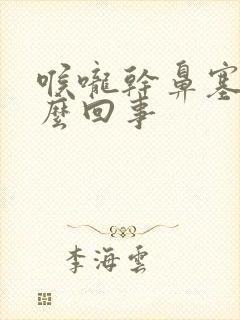 喉嚨幹鼻塞
麼回事
李海雲